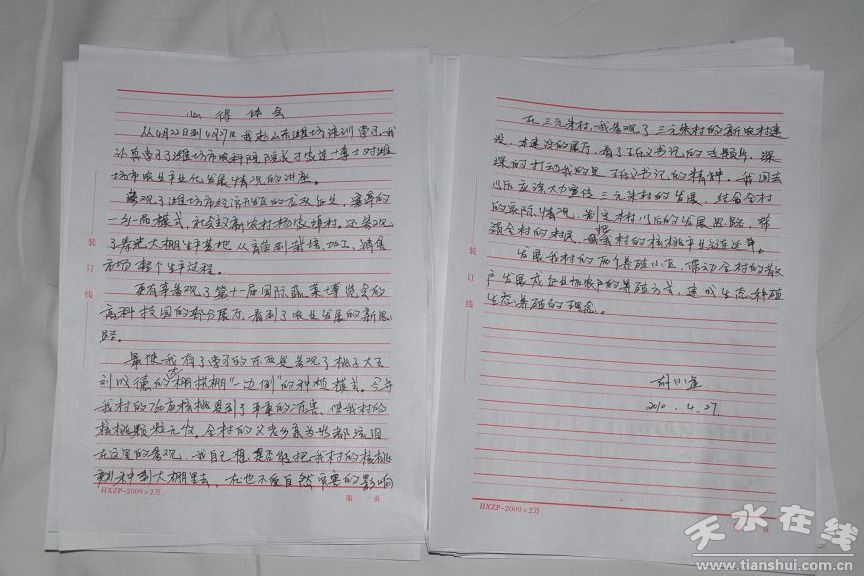 心得体会
从4月22日到4月27日我赴山东潍坊培训学习,我
认真学习了潍坊市农科院院长丁俊洋博士对潍
坊市农业产业化发展情况的讲座。
参观了潍坊市经济开发区的龙头企业,寒亭的
一乡一品模式,社会主义新农村杨家埠村。还参观
了寿光大棚生产基地从育苗到栽培、加工、销售
市场整个生产过程。
更有幸参观了第十一届国际蔬菜博览会的
高科技园的部分展厅,看到了农业发展的新思
路。
最使我有了学习的东西是参观了桃子大王
刘 德的棚栽桃"一边倒"的种植模式。今年
我村的760亩核桃受到了严重的冻害,使我村的
核桃颗粒无收,全村的父老乡亲为此都流泪
在这里的参观,我自己想是否能把我村的核桃
种到大棚里去,在也不受自然灾害的影响
装
订
线
HXZP-2009×2万
第 页
在三元朱村,我参观了三元朱村的新农村建
设,本建设的展厅,看了王乐义书记的专题片,深
深的打动我的是王乐义书记的精神。我回去
以后应该大力宣传三元朱村的发展,结合全村
的实际情况,制定本村以后的发展思路,带
领全村的村民,把我村的核桃产业
发展我村的两个养殖小区,带动全村的散
户发展成企业 农户的养殖方式,建成生态种植
生态养殖的理念。
2010.4.27
装
订
线
HXZP-2009×2万
页
天水在线
www.tianshui.com.cn